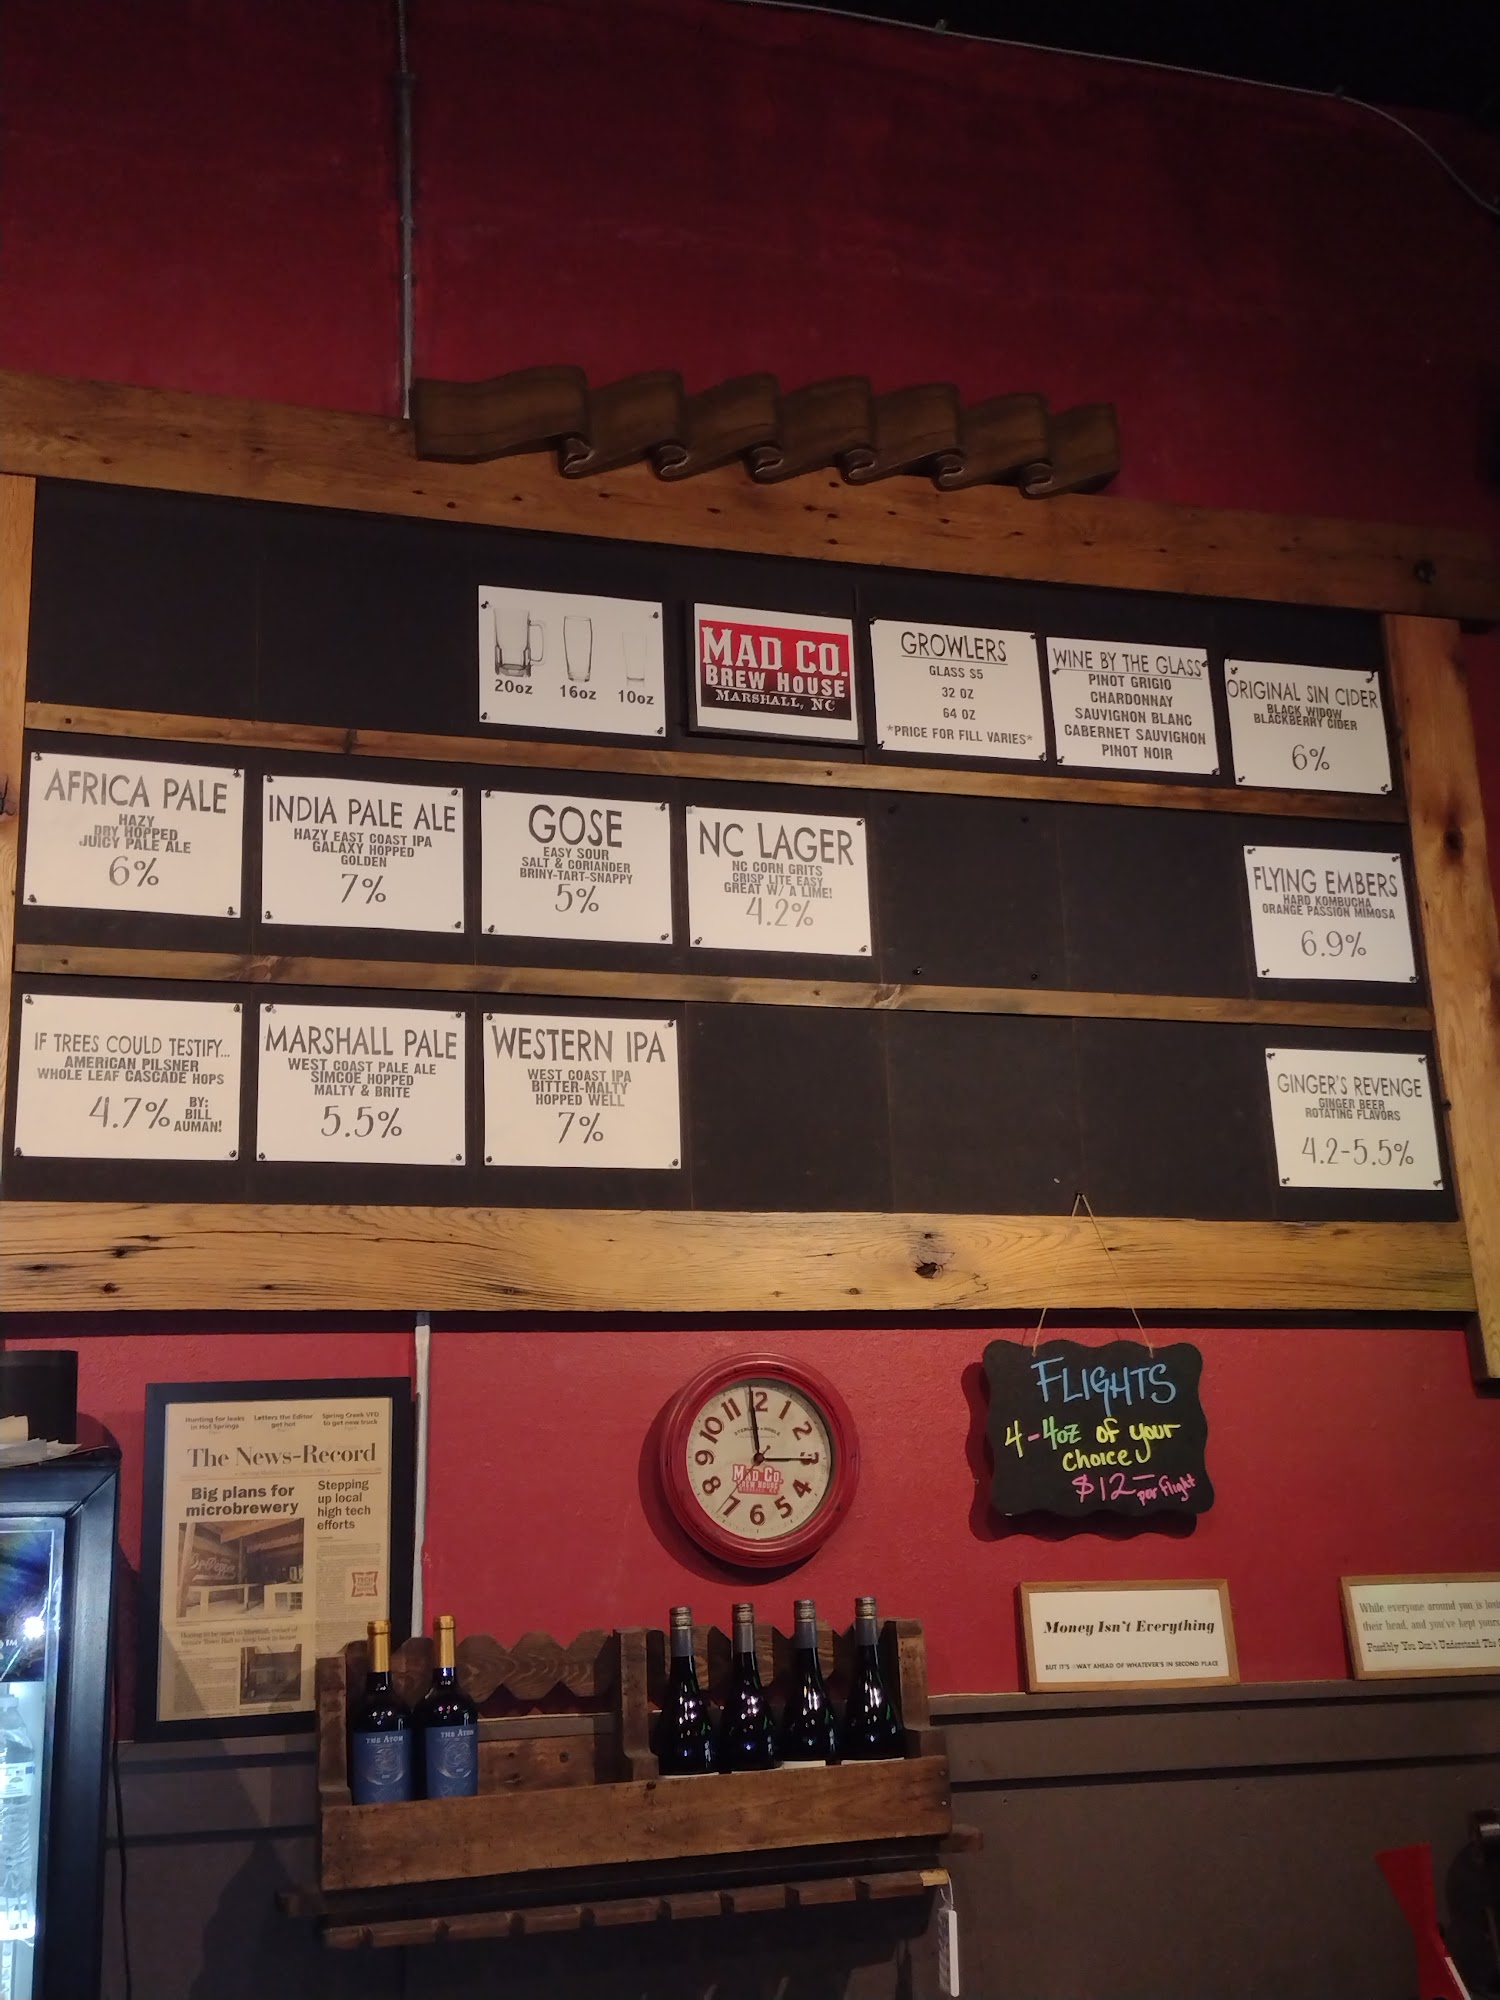 20oz 16oz 10oz
MAD CO.
BREW HOUSE
MARSHALL, NC
GROWLERS
GLASS $5
32 OZ
64 OZ
*PRICE FOR FILL VARIES*
WINE BY THE GLASS
PINOT GRIGIO
CHARDONNAY
SAUVIGNON BLANC
CABERNET SAUVIGNON
PINOT NOIR
ORIGINAL SIN CIDER
BLACK WIDOW
BLACKBERRY CIDER
6%
AFRICA PALE
HAZY
DRY HOPPED
JUICY PALE ALE
6%
INDIA PALE ALE
HAZY EAST COAST IPA
GALAXY HOPPED
GOLDEN
7%
GOSE
EASY SOUR
SALT & CORIANDER
BRINY-TART-SNAPPY
5%
NC LAGER
NC CORN GRITS
CRISP LITE EASY
GREAT W/ A LIME!
4.2%
FLYING EMBERS
HARD KOMBUCHA
ORANGE PASSION MIMOSA
6.9%
IF TREES COULD TESTIFY...
AMERICAN PILSNER
WHOLE LEAF CASCADE HOPS
4.7% BY:
BILL
AUMAN!
MARSHALL PALE
WEST COAST PALE ALE
SIMCOE HOPPED
MALTY & BRITE
5.5%
WESTERN IPA
WEST COAST IPA
BITTER-MALTY
HOPPED WELL
7%
GINGER'S REVENGE
GINGER BEER
ROTATING FLAVORS
4.2-5.5%
FLIGHTS
4-4oz of your
choice
$12- per flight
Hunting for leaks
in Hot Springs
Letters the Editor
get hot
Spring Creek VFD
to get new truck
The News-Record
Big plans for
microbrewery
Stepping
up local
high tech
efforts
12 1 2 3 4 5 6 7 8 9 10 11
MAD CO.
BREW HOUSE
Money Isn't Everything
BUT IT'S WAY AHEAD OF WHATEVER'S IN SECOND PLACE
While everyone around you is
their head, and you've kept
Possibly You Don't Understand The
THE ATOM
THE ATOM